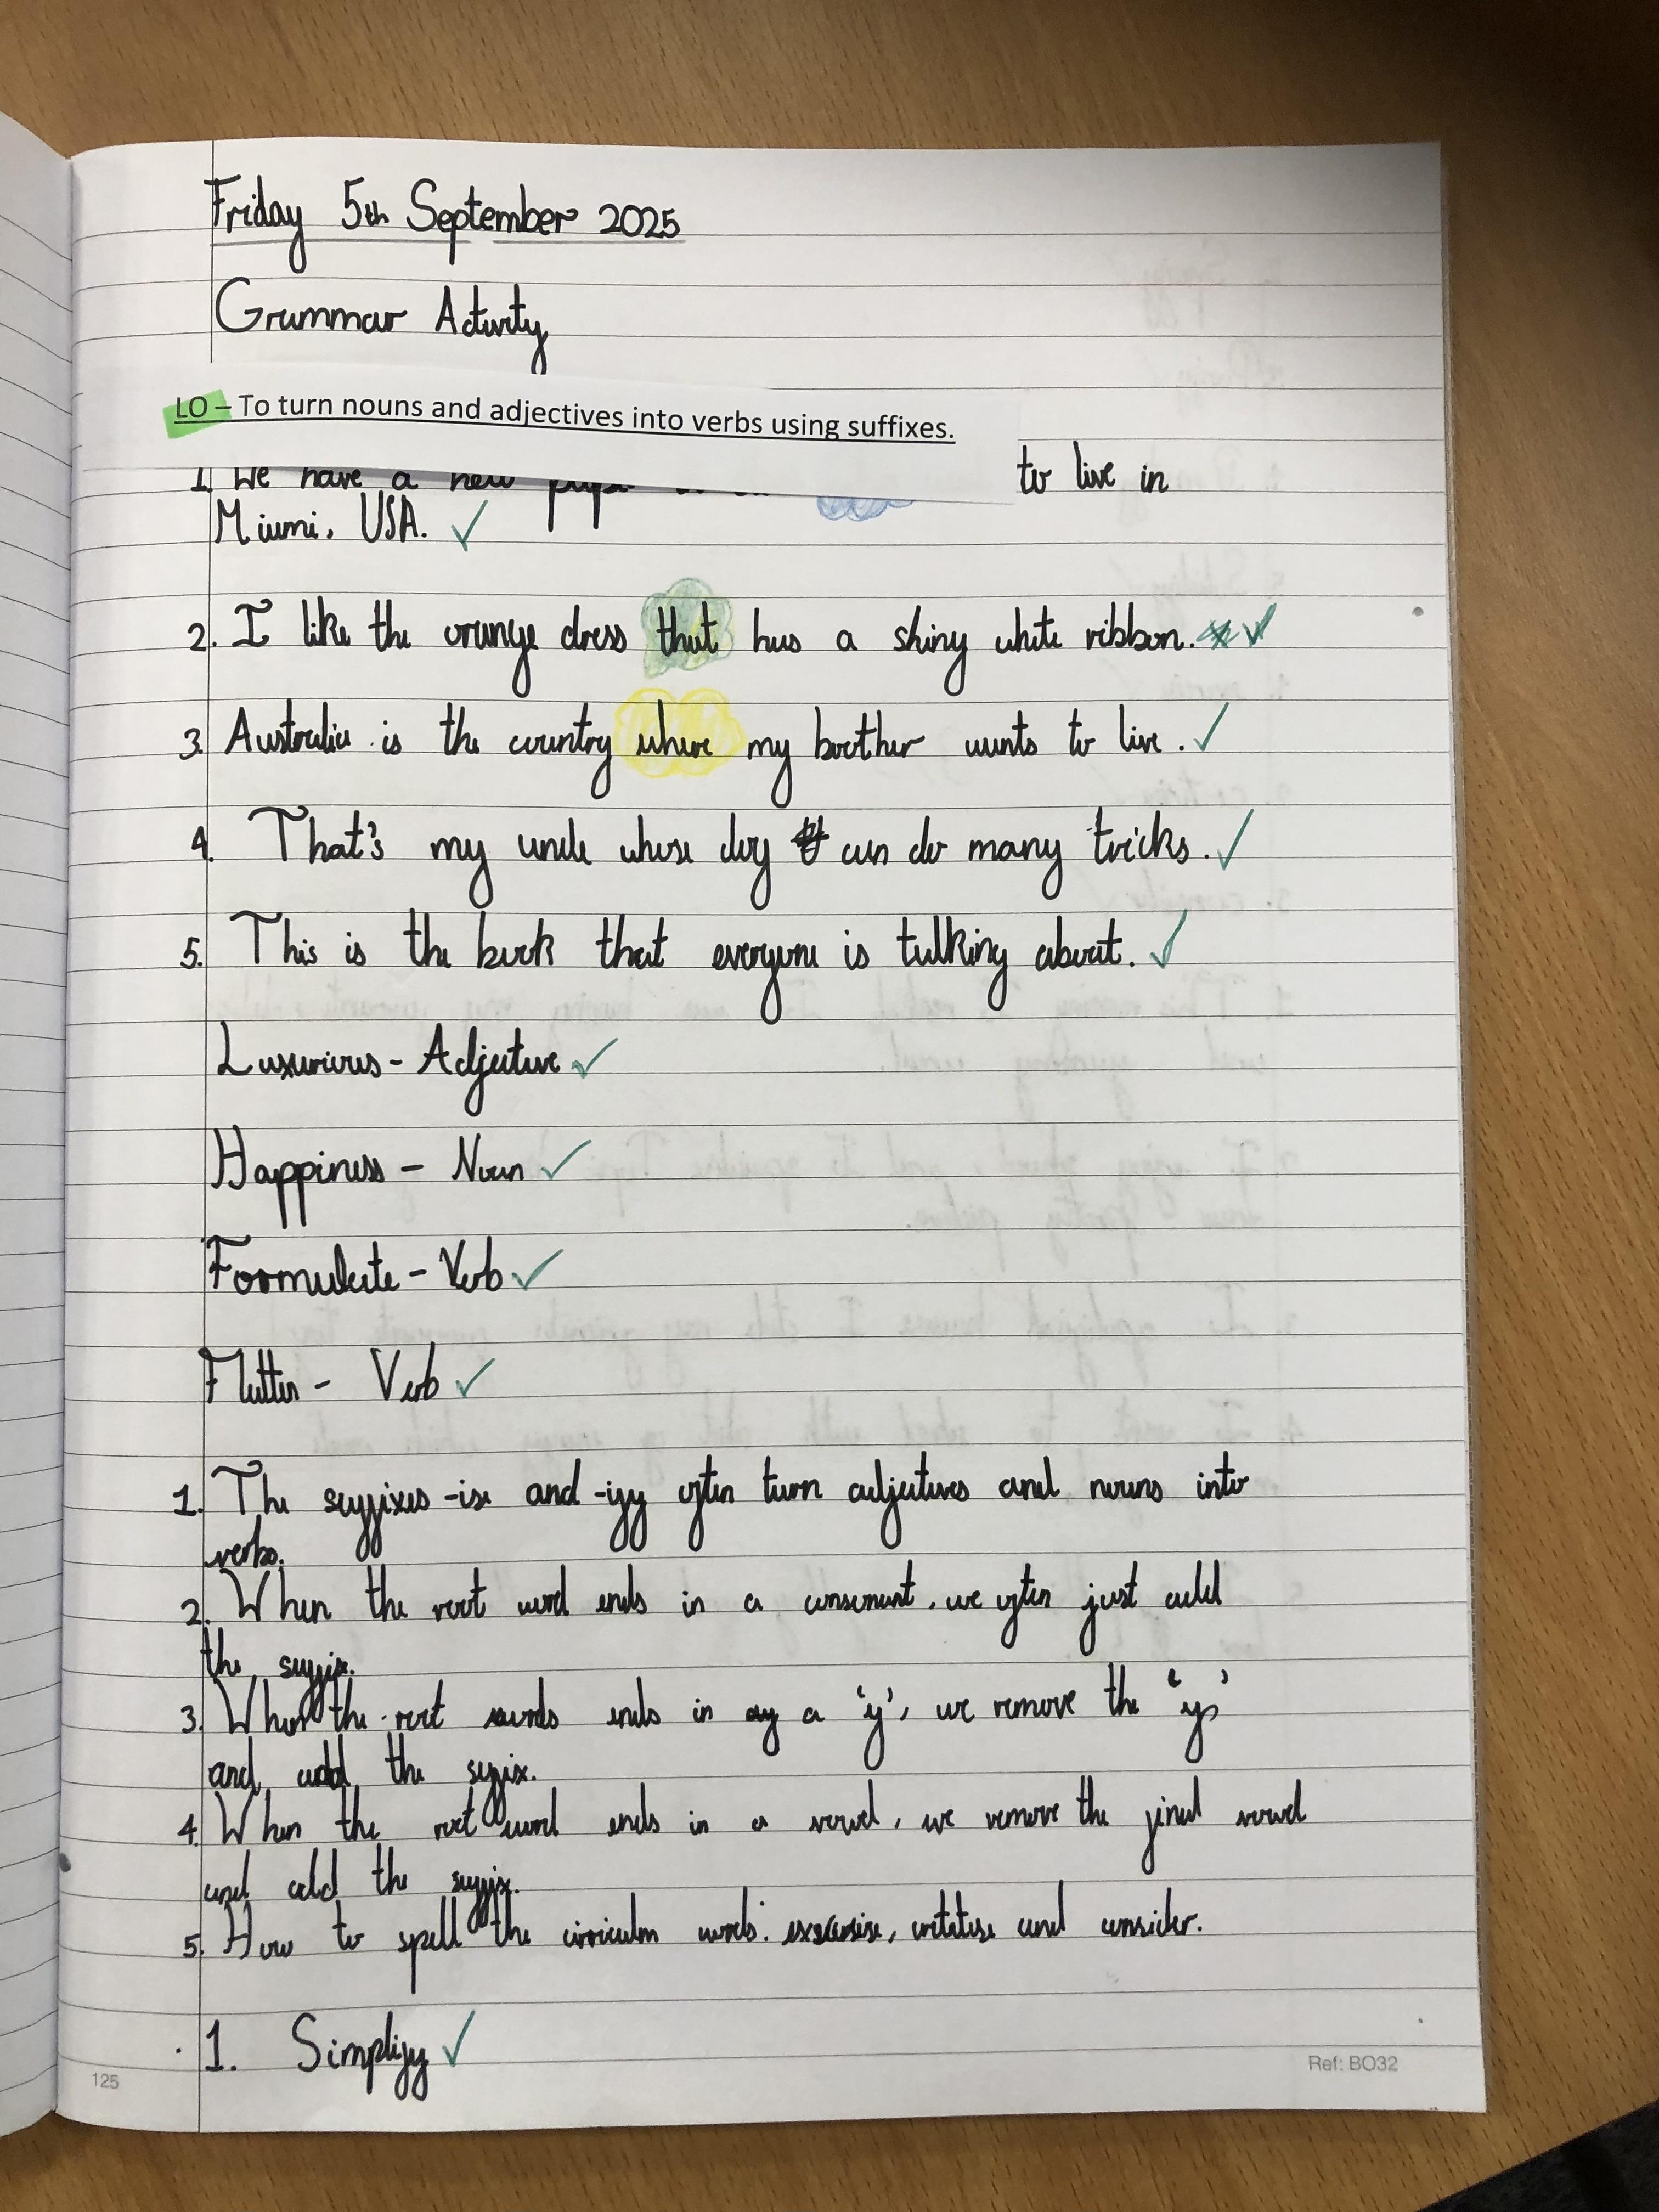 Friday 5th September 2025
Grammar Activity
LO – To turn nouns and adjectives into verbs using suffixes.
1. We have a new to live in
Miami, USA. ✓
2. I like the orange dress that has a shiny white ribbon. ✓
3. Australia is the country where my brother wants to live. ✓
4. That's my uncle whose dog can do many tricks. ✓
5. This is the book that everyone is talking about. ✓
Luxurious - Adjective ✓
Happiness - Noun ✓
Formulate - Verb ✓
Flatten - Verb ✓
1. The suffixes -ise and -ify often turn adjectives and nouns into
verbs.
2. When the root word ends in a consonant, we often just add
the suffix.
3. When the root words ends in a 'y', we remove the 'y'
and add the suffix.
4. When the root word ends in a vowel, we remove the final vowel
and add the suffix.
5. How to spell the words: and consider.
1. Simplify ✓
125
Ref: BO32